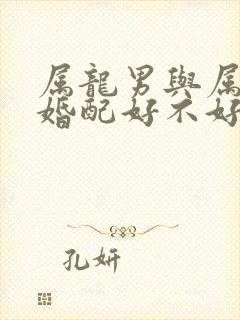 属龍男與属
婚配好不好
孔妍